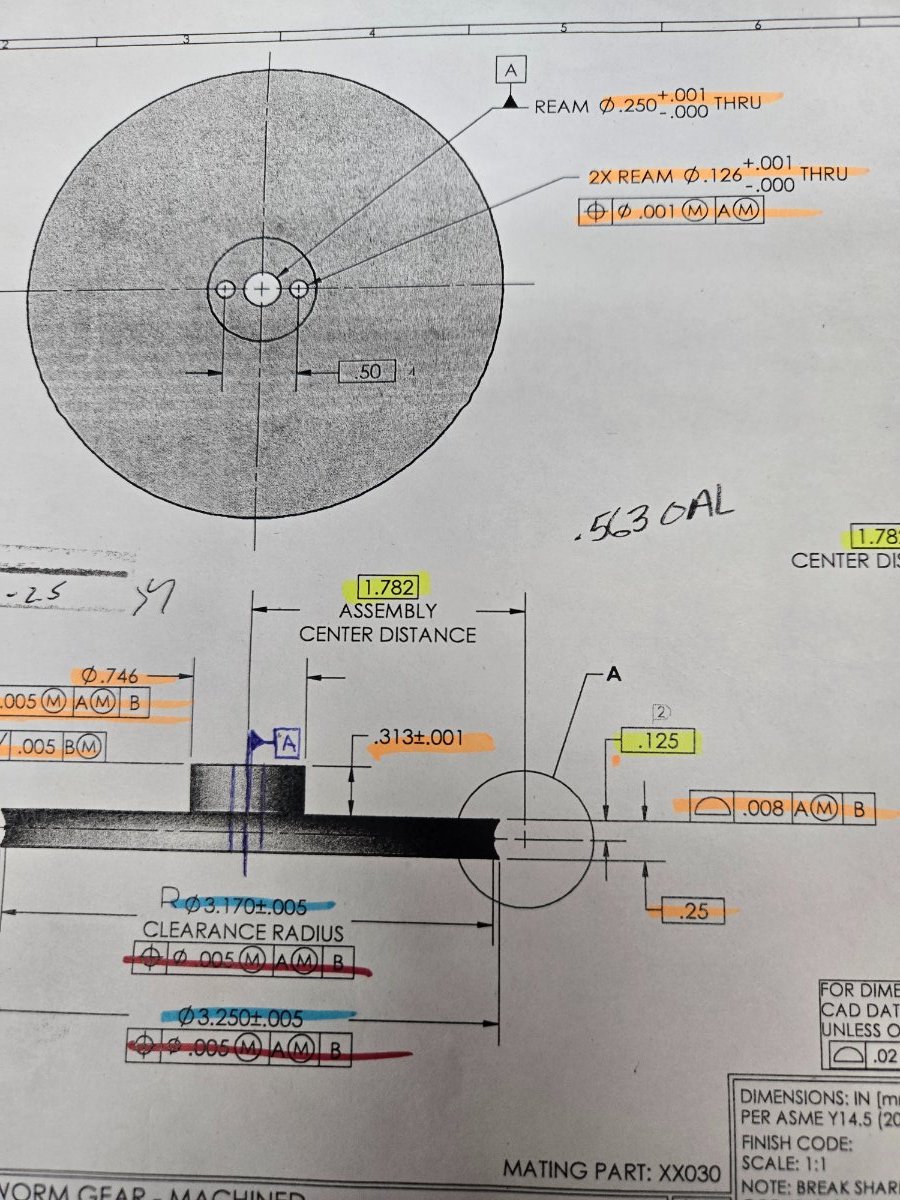 2 3 4 5 6
A
REAM Ø.250 +.001 -.000 THRU
2X REAM Ø.126 +.001 -.000 THRU
⌖ Ø .001 Ⓜ A Ⓜ
.50
.563 OAL
1.782
ASSEMBLY
CENTER DISTANCE
1.78
CENTER DIS
-.25
Ø.746
.005 Ⓜ A Ⓜ B
.005 B Ⓜ
A
.313±.001
A
2
.125
⌓ .008 A Ⓜ B
.25
R Ø3.170±.005
CLEARANCE RADIUS
⌖ Ø .005 Ⓜ A Ⓜ B
Ø3.250±.005
⌖ Ø .005 Ⓜ A Ⓜ B
FOR DIME
CAD DAT
UNLESS O
⌓ .02
DIMENSIONS: IN [m
PER ASME Y14.5 (20
FINISH CODE:
SCALE: 1:1
NOTE: BREAK SHAR
MATING PART: XX030
WORM GEAR - MACHINED